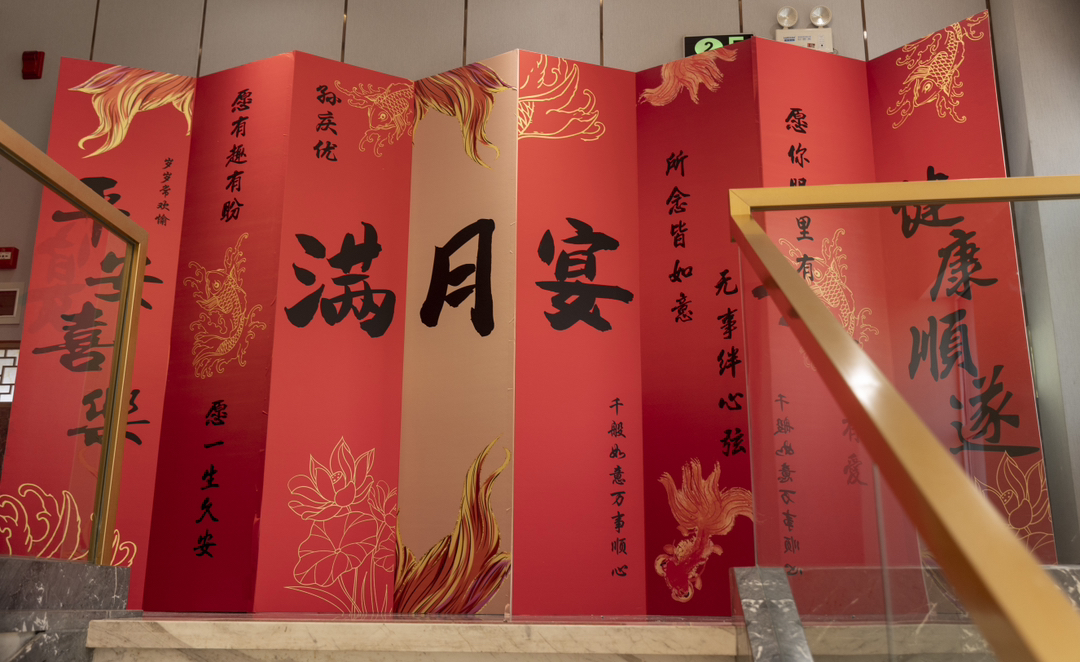 岁岁常欢愉
平安喜樂
愿有趣有盼
愿一生久安
孙庆优
满月宴
千般如意万事顺心
所念皆如意
无事绊心弦
愿你眼里有
有爱
健康順遂
2F